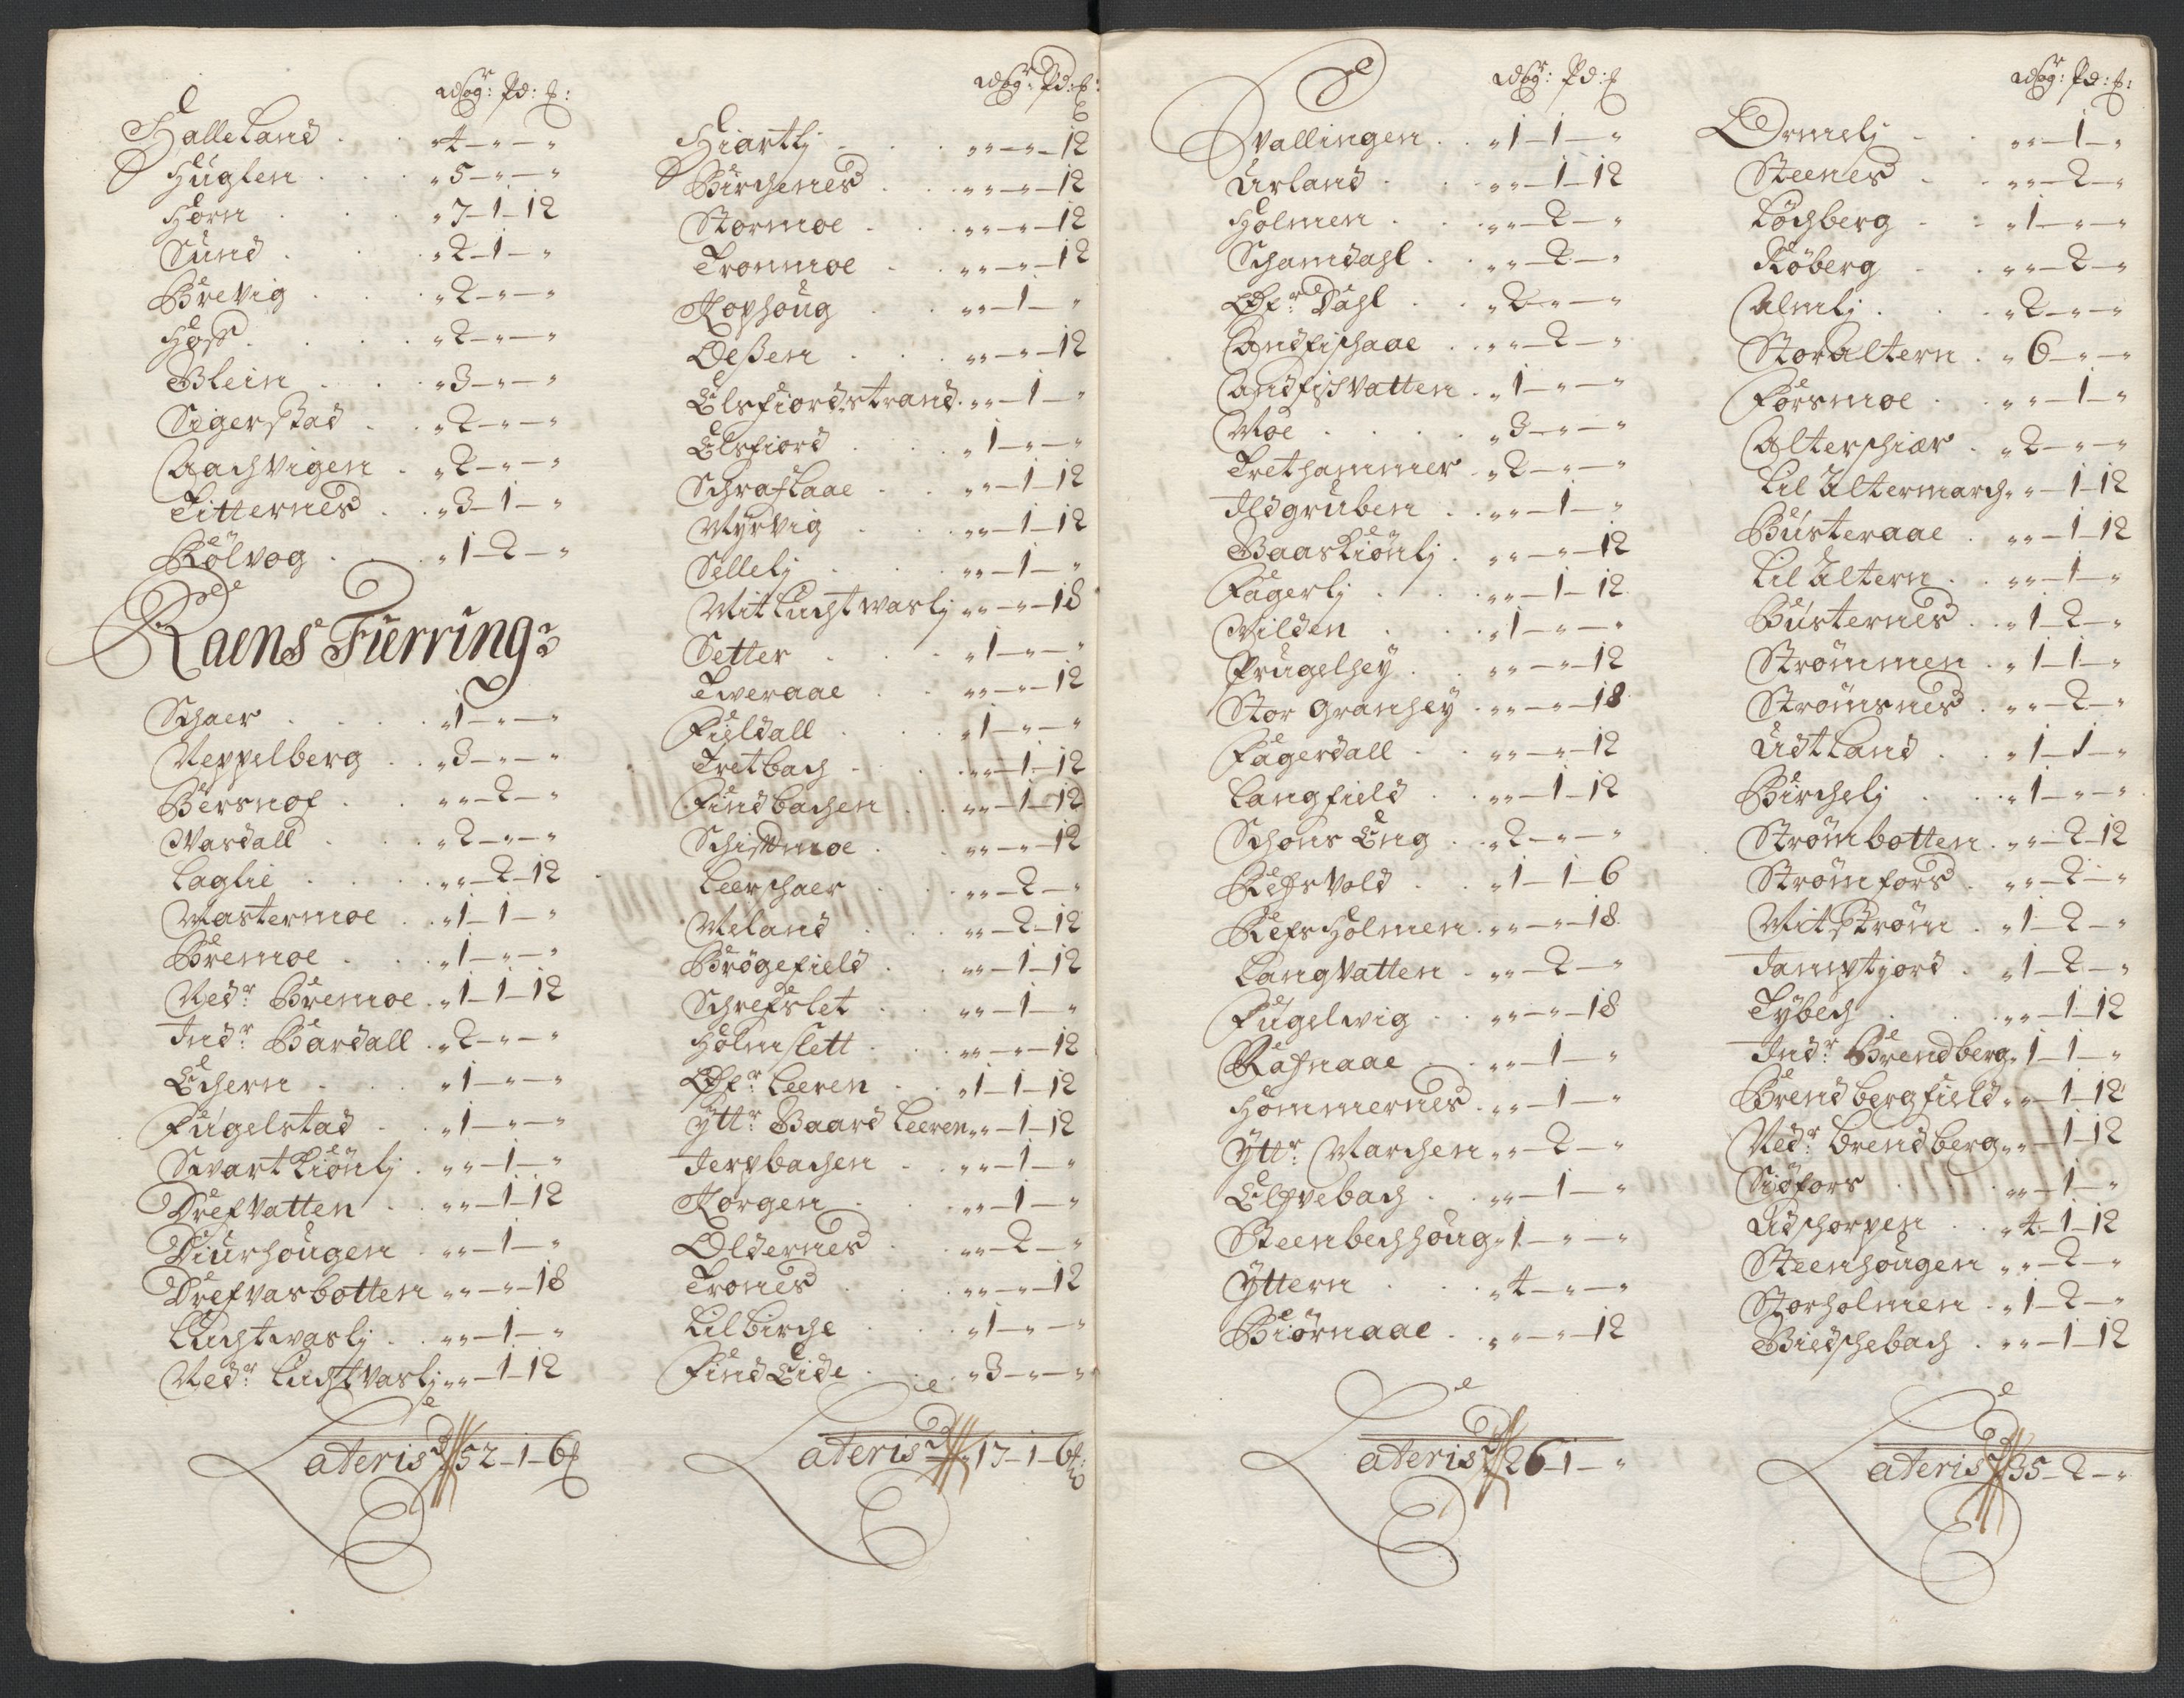 Wog: Pd: ℔:
Halleland . . „4–„–„
Huglen . . „5–„–„
Horn . . „7–1–12
Sund . . „2–1–„
Brevig . . „2–„–„
Høst . . „2–„–„
Blein . . „3–„–„
Segerstad . „2–„–„
Aachvigen . „2–„–„
Titternes . „3–1–„
Kølvog . . „1–2–„
Raens Fierring:
Schaer . . „1–„–„
Neppelberg . „3–„–„
Bersnof . . „„–2–„
Wardall . . „2–„–„
Laglie . . „„–2–12
Mastermoe . „1–1–„
Bremoe . . „1–„–„
Nedr: Bremoe . „1–1–12
Indr: Bardall . „2–„–„
Echern . . „1–„–„
Fugelstad . „1–„–„
Svartkiønlj . „„–1–„
Drefvatten . „„–1–12
Diurhougen . „„–1–„
Drefvasbotten „„–„–18
Luchtvaslj . „„–1–„
Nedr: Luchtvaslj „„–1–12
Lateris 52–1–6℔
Wog: Pd: ℔:
Hiartlj . . „„–„–12
Birchenes . „„–„–12
Stormoe . . „„–„–12
Tronmoe . „„–„–12
Kophoug . . „„–1–„
Oeßen . . „„–„–12
Elsfiordstrand . „„–1–„
Elsfiord . . „1–„–„
Schraflaae . „„–1–12
Myrvig . . „„–1–12
Sellelj . . „„–1–„
Mitluchtwaslj „„–„–18
Setter . . „1–„–„
Tweraae . . „„–„–12
Fieldall . . „1–„–„
Tretbach . . „„–1–12
Findbachen . „„–1–12
Schistmoe . „„–„–12
Leerschaer . „„–2–„
Meland . . „„–2–12
Brøgefield . „„–1–12
Schrefslet . „„–1–„
Holmslett . „„–„–12
Øfr: Leeren . „1–1–12
Yttr: Baard Leeren „„–1–12
Jerpbachen . „„–1–„
Korgen . . „„–1–„
Oldernes . „„–2–„
Trones . . „„–„–12
Lilbirche . „1–„–„
Find Eide . „3–„–„
Lateris 17–1–6℔:
Wog: Pd: ℔
Svallingen . „1–1–„
Urland . . „„–1–12
Holmen . . „„–2–„
Schamdahl . „„–2–„
Øfr: Dahl . „2–„–„
Andfischaae . „„–2–„
Andfischvatten . „1–„–„
Moe . . . „3–„–„
Trethammer . „2–„–„
Ildgruben . „„–1–„
Baaskiønlj . „„–„–12
Fagerlj . . „„–1–12
Vilden . . „1–„–„
Prugelhey . „„–„–12
Stor Granhey . „„–„–18
Fagerdall . „„–„–12
Langfield . „„–1–12
Schons Eng . „2–„–„
Refsvold . . „1–1–6
Refsholmen . „„–„–18
Langvatten . „„–2–„
Fugelwig . . „„–„–18
Rafnaae . . „„–1–„
Hommernes . „„–1–„
Yttr: Marchen „„–2–„
Elfvebach . „„–1–„
Steenbechhoug „1–„–„
Yttern . . „4–„–„
Biørnaae . „„–„–12
Lateris 26–1–„
Wog: Pd: ℔:
Ormelj . . „„–1–„
Steenes . . „„–2–„
Løchberg . „1–„–„
Røberg . . „„–2–„
Almlj . . „2–„–„
Storaltern . „6–„–„
Forsmoe . . „„–1–„
Alterschiær . „2–„–„
Lil Altermarch „„–1–12
Busteraae . „„–1–12
Lil Altern . „„–1–„
Busternes . „1–2–„
Strømmen . „1–1–„
Strømsnes . „„–2–„
Udtland . . „1–1–„
Birchelj . . „1–„–„
Strømbotten . „„–2–12
Strømfors . „„–2–„
Mitstrøm . „1–2–„
Jamptjord . „1–2–„
Tybech . . „„–1–12
Indr: Brendberg „1–1–„
Brendbergfield „„–1–12
Nedr: Brendberg „„–1–12
Siøfors . . „„–1–„
Udschorpen . „4–1–12
Steenhougen „„–2–„
Storholmen . „1–2–„
Biedschebach . „„–1–12
Lateris 35–2–„